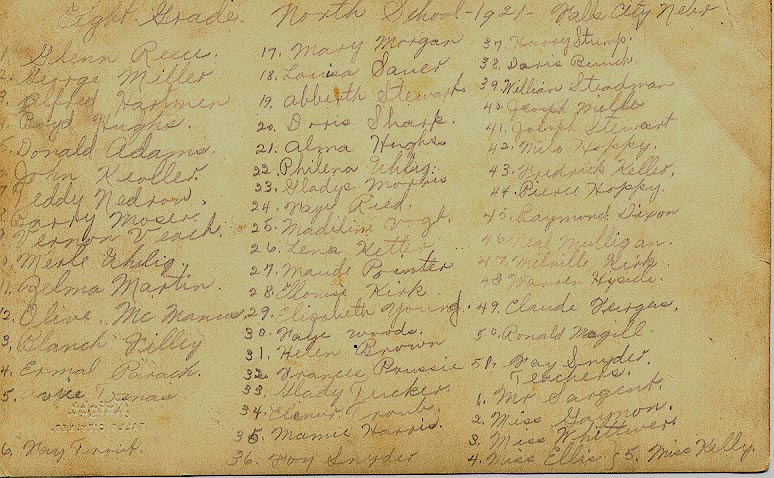 Eight Grade. North School - 1921 - Falls City Nebr
1. Glenn Rece.
2. George Miller
3. Alfred Hartmen
4. Boyd Hughs.
5. Donald Adams.
John Keoller.
7 Teddy Nedrow.
8 Harry Moser.
9 Vernon Veach.
Merle Uhlig.
11. Zelma Martin.
12. Olive Mc Manus.
3. Blanch Filley
4. Ermal
5.
6. Fay Trout.
17. Mary Morgan
18. Louisa Sauer
19. Abberth Stewart.
20. Doris Shark.
21. Alma Hughs
22. Philena Uhlig.
23. Gladys Morris
24. Faye Ried.
25. Madiline Vogt.
26. Lena Ketter
27. Maude Pointer
28. Elouise Kirk
29. Elizabeth Young.
30. Faye Woods.
31. Helen Brown
32. Frances
33. Glady Tucker.
34. Elenor Trout.
35. Mamie Harris.
36. Foy Snyder
37. Harry Stump.
38. Doris Bunch.
39. William Steadman
40. Joseph Mills
41. Joseph Stewart
42. Milo Hoppy.
43. Fredrick Keller.
44. Pierce Hoppy.
45. Raymond Dixon
46. Neal Mulligan.
47. Melville Kirk.
48. Warren
49. Claude
50. Ronald Magill.
51. Fay Snyder.
Teachers.
1. Mr Sargent.
2. Miss Gaynon.
3. Miss Whittiver.
4. Miss Ellis & 5. Miss Kelly.